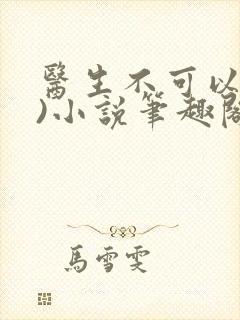 醫生不可以
)小說筆趣閣
馬雪雯